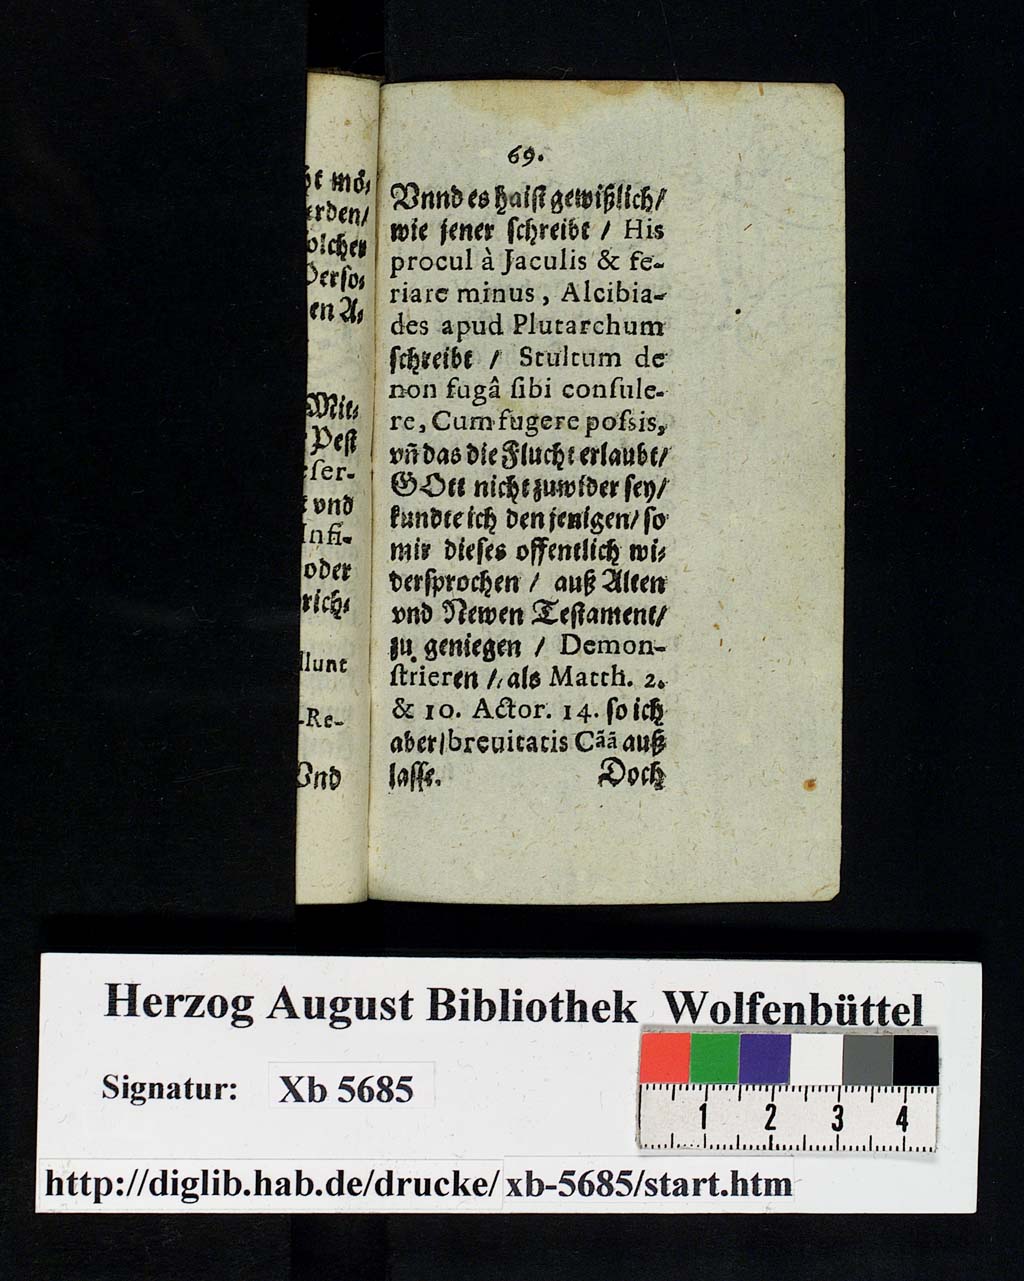 ht mö⸗
erden/
olcher
Perso⸗
en A⸗
Mit⸗
Pest
eser-
vnd
Infi-
oder
rich⸗
llunt
-Re-
Vnd
69.
Vnnd es haist gewißlich/
wie jener schreibt / His
procul à Jaculis & fe-
riare minus, Alcibia-
des apud Plutarchum
schreibt / Stultum de
non fugâ sibi consule-
re, Cum fugere possis,
vñ das die Flucht erlaubt/
GOtt nicht zuwider sey/
kundte ich den jenigen/ so
mir dieses offentlich wi⸗
dersprochen / auß Alten
vnd Newen Testament/
zu geniegen / Demon-
strieren /, als Matth. 2.
& 10. Actor. 14. so ich
aber/ breuitatis Cãã auß
lasse. Doch
Herzog August Bibliothek Wolfenbüttel
Signatur: Xb 5685
1 2 3 4
http://diglib.hab.de/drucke/xb-5685/start.htm